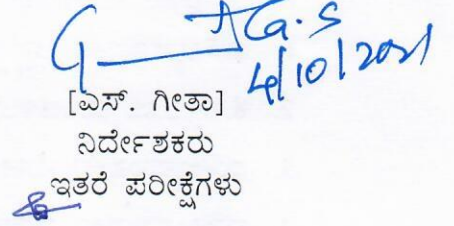 4/10/2021
[ಎಸ್. ಗೀತಾ]
ನಿರ್ದೇಶಕರು
ಇತರೆ ಪರೀಕ್ಷೆಗಳು